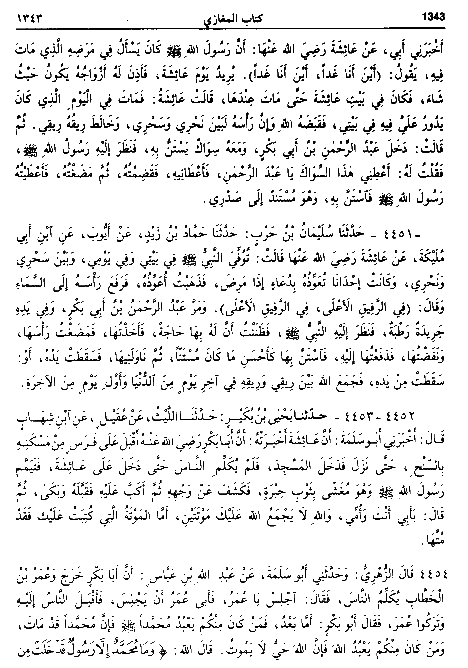 ١٣٤٣ كتاب المغازي 1343
أَخْبَرَنِي أَبِي، عَنْ عَائِشَةَ رَضِيَ اللهُ عَنْهَا: أَنَّ رَسُولَ اللهِ ﷺ كَانَ يَسْأَلُ فِي مَرَضِهِ الَّذِي مَاتَ
فِيهِ، يَقُولُ: (أَيْنَ أَنَا غَداً، أَيْنَ أَنَا غَداً). يُرِيدُ يَوْمَ عَائِشَةَ، فَأَذِنَ لَهُ أَزْوَاجُهُ يَكُونُ حَيْثُ
شَاءَ، فَكَانَ فِي بَيْتِ عَائِشَةَ حَتَّى مَاتَ عِنْدَهَا، قَالَتْ عَائِشَةُ: فَمَاتَ فِي الْيَوْمِ الَّذِي كَانَ
يَدُورُ عَلَيَّ فِيهِ فِي بَيْتِي، فَقَبَضَهُ اللهُ وَإِنَّ رَأْسَهُ لَبَيْنَ نَحْرِي وَسَحْرِي، وَخَالَطَ رِيقُهُ رِيقِي. ثُمَّ
قَالَتْ: دَخَلَ عَبْدُ الرَّحْمٰنِ بْنُ أَبِي بَكْرٍ، وَمَعَهُ سِوَاكٌ يَسْتَنُّ بِهِ، فَنَظَرَ إِلَيْهِ رَسُولُ اللهِ ﷺ،
فَقُلْتُ لَهُ: أَعْطِنِي هٰذَا السِّوَاكَ يَا عَبْدَ الرَّحْمٰنِ، فَأَعْطَانِيهِ، فَقَضِمْتُهُ، ثُمَّ مَضَغْتُهُ، فَأَعْطَيْتُهُ
رَسُولَ اللهِ ﷺ فَاسْتَنَّ بِهِ، وَهُوَ مُسْتَنِدٌ إِلَى صَدْرِي.
٤٤٥١ - حَدَّثَنَا سُلَيْمَانُ بْنُ حَرْبٍ: حَدَّثَنَا حَمَّادُ بْنُ زَيْدٍ، عَنْ أَيُّوبَ، عَنِ ابْنِ أَبِي
مُلَيْكَةَ، عَنْ عَائِشَةَ رَضِيَ اللهُ عَنْهَا قَالَتْ: تُوُفِّيَ النَّبِيُّ ﷺ فِي بَيْتِي وَفِي يَوْمِي، وَبَيْنَ سَحْرِي
وَنَحْرِي، وَكَانَتْ إِحْدَانَا تُعَوِّذُهُ بِدُعَاءٍ إِذَا مَرِضَ، فَذَهَبْتُ أُعَوِّذُهُ، فَرَفَعَ رَأْسَهُ إِلَى السَّمَاءِ
وَقَالَ: (فِي الرَّفِيقِ الأَعْلَى، فِي الرَّفِيقِ الأَعْلَى). وَمَرَّ عَبْدُ الرَّحْمٰنِ بْنُ أَبِي بَكْرٍ، وَفِي يَدِهِ
جَرِيدَةٌ رَطْبَةٌ، فَنَظَرَ إِلَيْهِ النَّبِيُّ ﷺ، فَظَنَنْتُ أَنَّ لَهُ بِهَا حَاجَةً، فَأَخَذْتُهَا، فَمَضَغْتُ رَأْسَهَا،
وَنَفَضْتُهَا، فَدَفَعْتُهَا إِلَيْهِ، فَاسْتَنَّ بِهَا كَأَحْسَنِ مَا كَانَ مُسْتَنًّا، ثُمَّ نَاوَلَنِيهَا، فَسَقَطَتْ يَدُهُ، أَوْ:
سَقَطَتْ مِنْ يَدِهِ، فَجَمَعَ اللهُ بَيْنَ رِيقِي وَرِيقِهِ فِي آخِرِ يَوْمٍ مِنَ الدُّنْيَا وَأَوَّلِ يَوْمٍ مِنَ الآخِرَةِ.
٤٤٥٢ - ٤٤٥٣ - حَدَّثَنَا يَحْيَى بْنُ بُكَيْرٍ: حَدَّثَنَا اللَّيْثُ، عَنْ عُقَيْلٍ، عَنِ ابْنِ شِهَابٍ
قَالَ: أَخْبَرَنِي أَبُو سَلَمَةَ: أَنَّ عَائِشَةَ أَخْبَرَتْهُ: أَنَّ أَبَا بَكْرٍ رَضِيَ اللهُ عَنْهُ أَقْبَلَ عَلَى فَرَسٍ مِنْ مَسْكَنِهِ
بِالسُّنْحِ، حَتَّى نَزَلَ فَدَخَلَ الْمَسْجِدَ، فَلَمْ يُكَلِّمِ النَّاسَ حَتَّى دَخَلَ عَلَى عَائِشَةَ، فَتَيَمَّمَ
رَسُولَ اللهِ ﷺ وَهُوَ مُغَشًّى بِثَوْبِ حِبَرَةٍ، فَكَشَفَ عَنْ وَجْهِهِ ثُمَّ أَكَبَّ عَلَيْهِ فَقَبَّلَهُ وَبَكَى، ثُمَّ
قَالَ: بِأَبِي أَنْتَ وَأُمِّي، وَاللهِ لَا يَجْمَعُ اللهُ عَلَيْكَ مَوْتَتَيْنِ، أَمَّا الْمَوْتَةُ الَّتِي كُتِبَتْ عَلَيْكَ فَقَدْ
مُتَّهَا.
٤٤٥٤ قَالَ الزُّهْرِيُّ: وَحَدَّثَنِي أَبُو سَلَمَةَ، عَنْ عَبْدِ اللهِ بْنِ عَبَّاسٍ: أَنَّ أَبَا بَكْرٍ خَرَجَ وَعُمَرُ بْنُ
الْخَطَّابِ يُكَلِّمُ النَّاسَ، فَقَالَ: اجْلِسْ يَا عُمَرُ، فَأَبَى عُمَرُ أَنْ يَجْلِسَ، فَأَقْبَلَ النَّاسُ إِلَيْهِ
وَتَرَكُوا عُمَرَ، فَقَالَ أَبُو بَكْرٍ: أَمَّا بَعْدُ، فَمَنْ كَانَ مِنْكُمْ يَعْبُدُ مُحَمَّداً ﷺ فَإِنَّ مُحَمَّداً قَدْ مَاتَ،
وَمَنْ كَانَ مِنْكُمْ يَعْبُدُ اللهَ فَإِنَّ اللهَ حَيٌّ لَا يَمُوتُ. قَالَ اللهُ: ﴿وَمَا مُحَمَّدٌ إِلَّا رَسُولٌ قَدْ خَلَتْ مِن